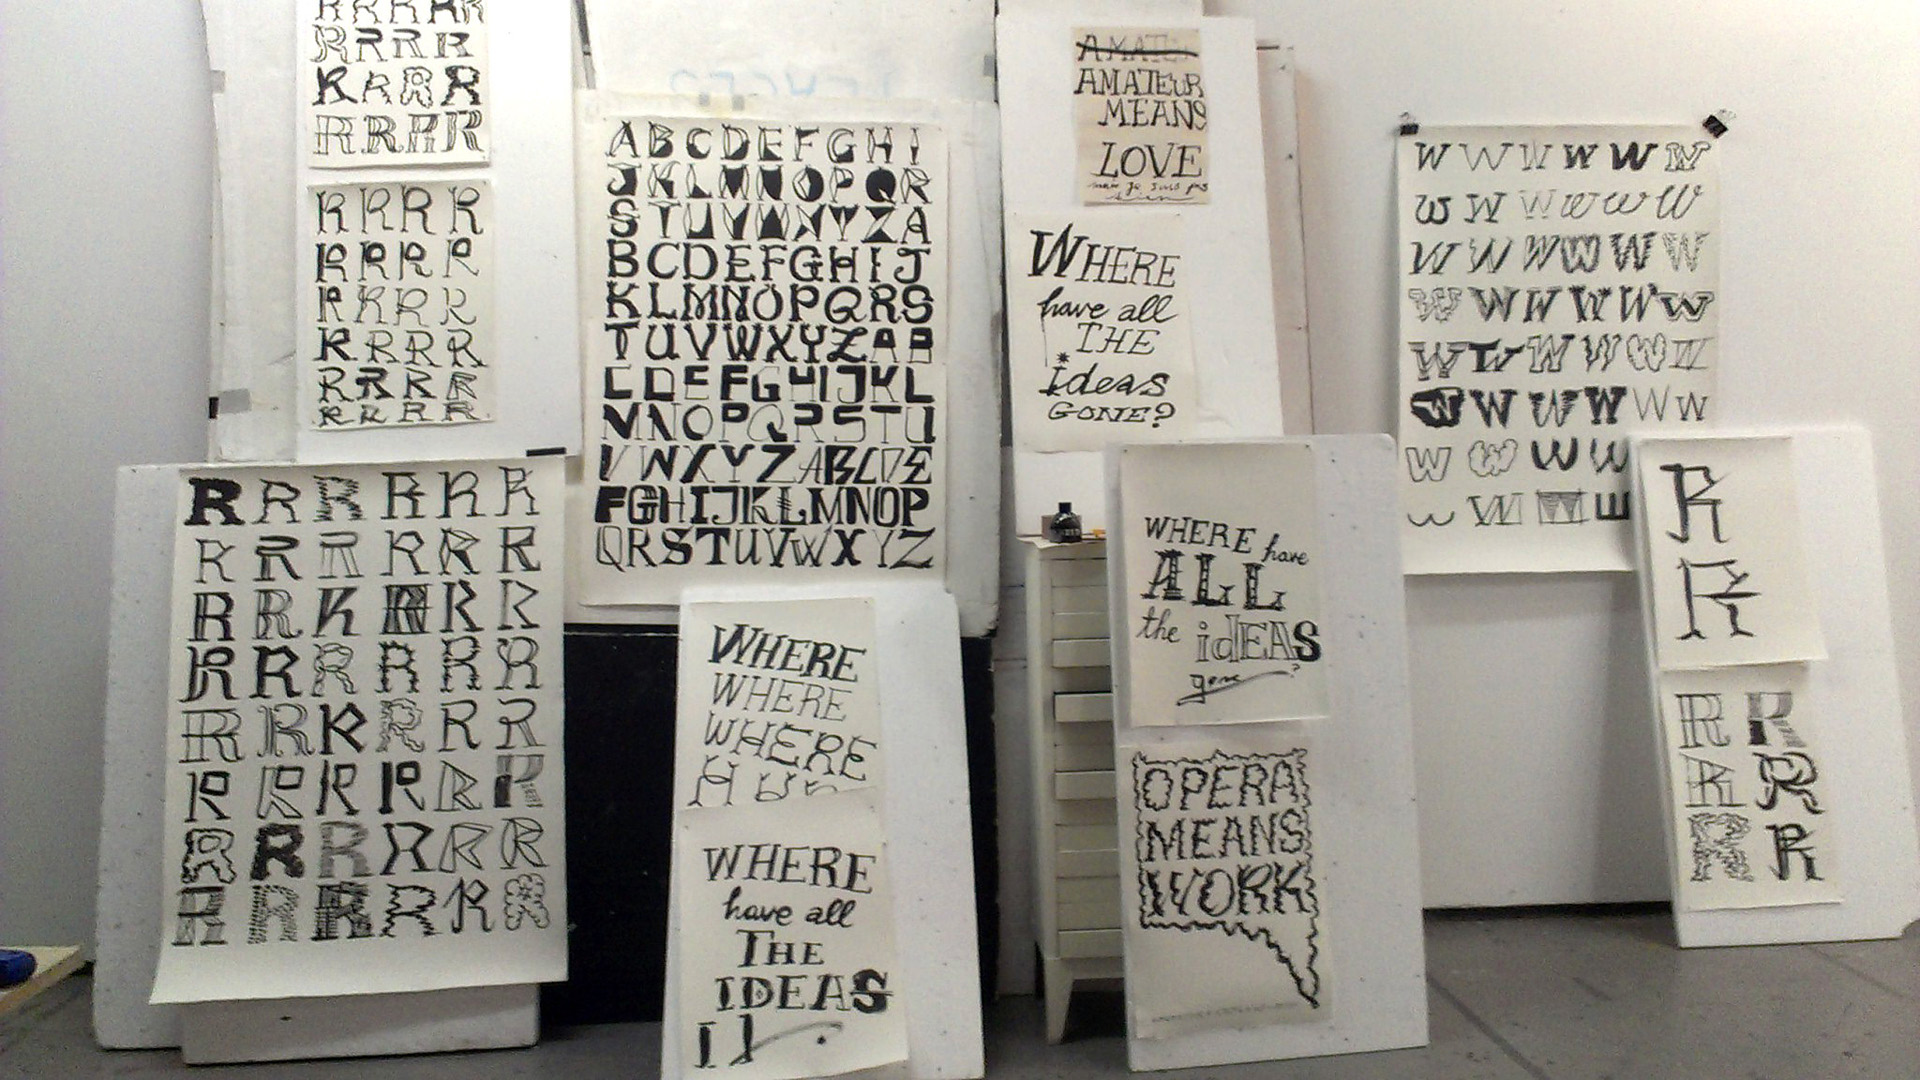 R R R R
R R R R
R R R R
R R R R
R R R R
R R R R
R R R R
R R R R
R R R R
R R R R
A B C D E F G H I
J K L M N O P Q R
S T U V W X Y Z A
B C D E F G H I J
K L M N O P Q R S
T U V W X Y Z A B
C D E F G H I J K L
M N O P Q R S T U
V W X Y Z A B C D E
F G H I J K L M N O P
Q R S T U V W X Y Z
AMATEUR
MEANS
LOVE
WHERE
have all
THE
ideas
GONE?
W W W W W W
W W W W W W
W W W W W W
W W W W W W
W W W W W W
W W W W W W
W W W W
W W W
R R R R R R
R R R R R R
R R R R R R
R R R R R R
R R R R R R
R R R R R R
R R R R R R
R R R R R R
WHERE
WHERE
WHERE
WHERE
have all
THE
IDEAS
WHERE have
ALL
the idEAS
gone ?
OPERA
MEANS
WORK
R
R
R R
R R
R R